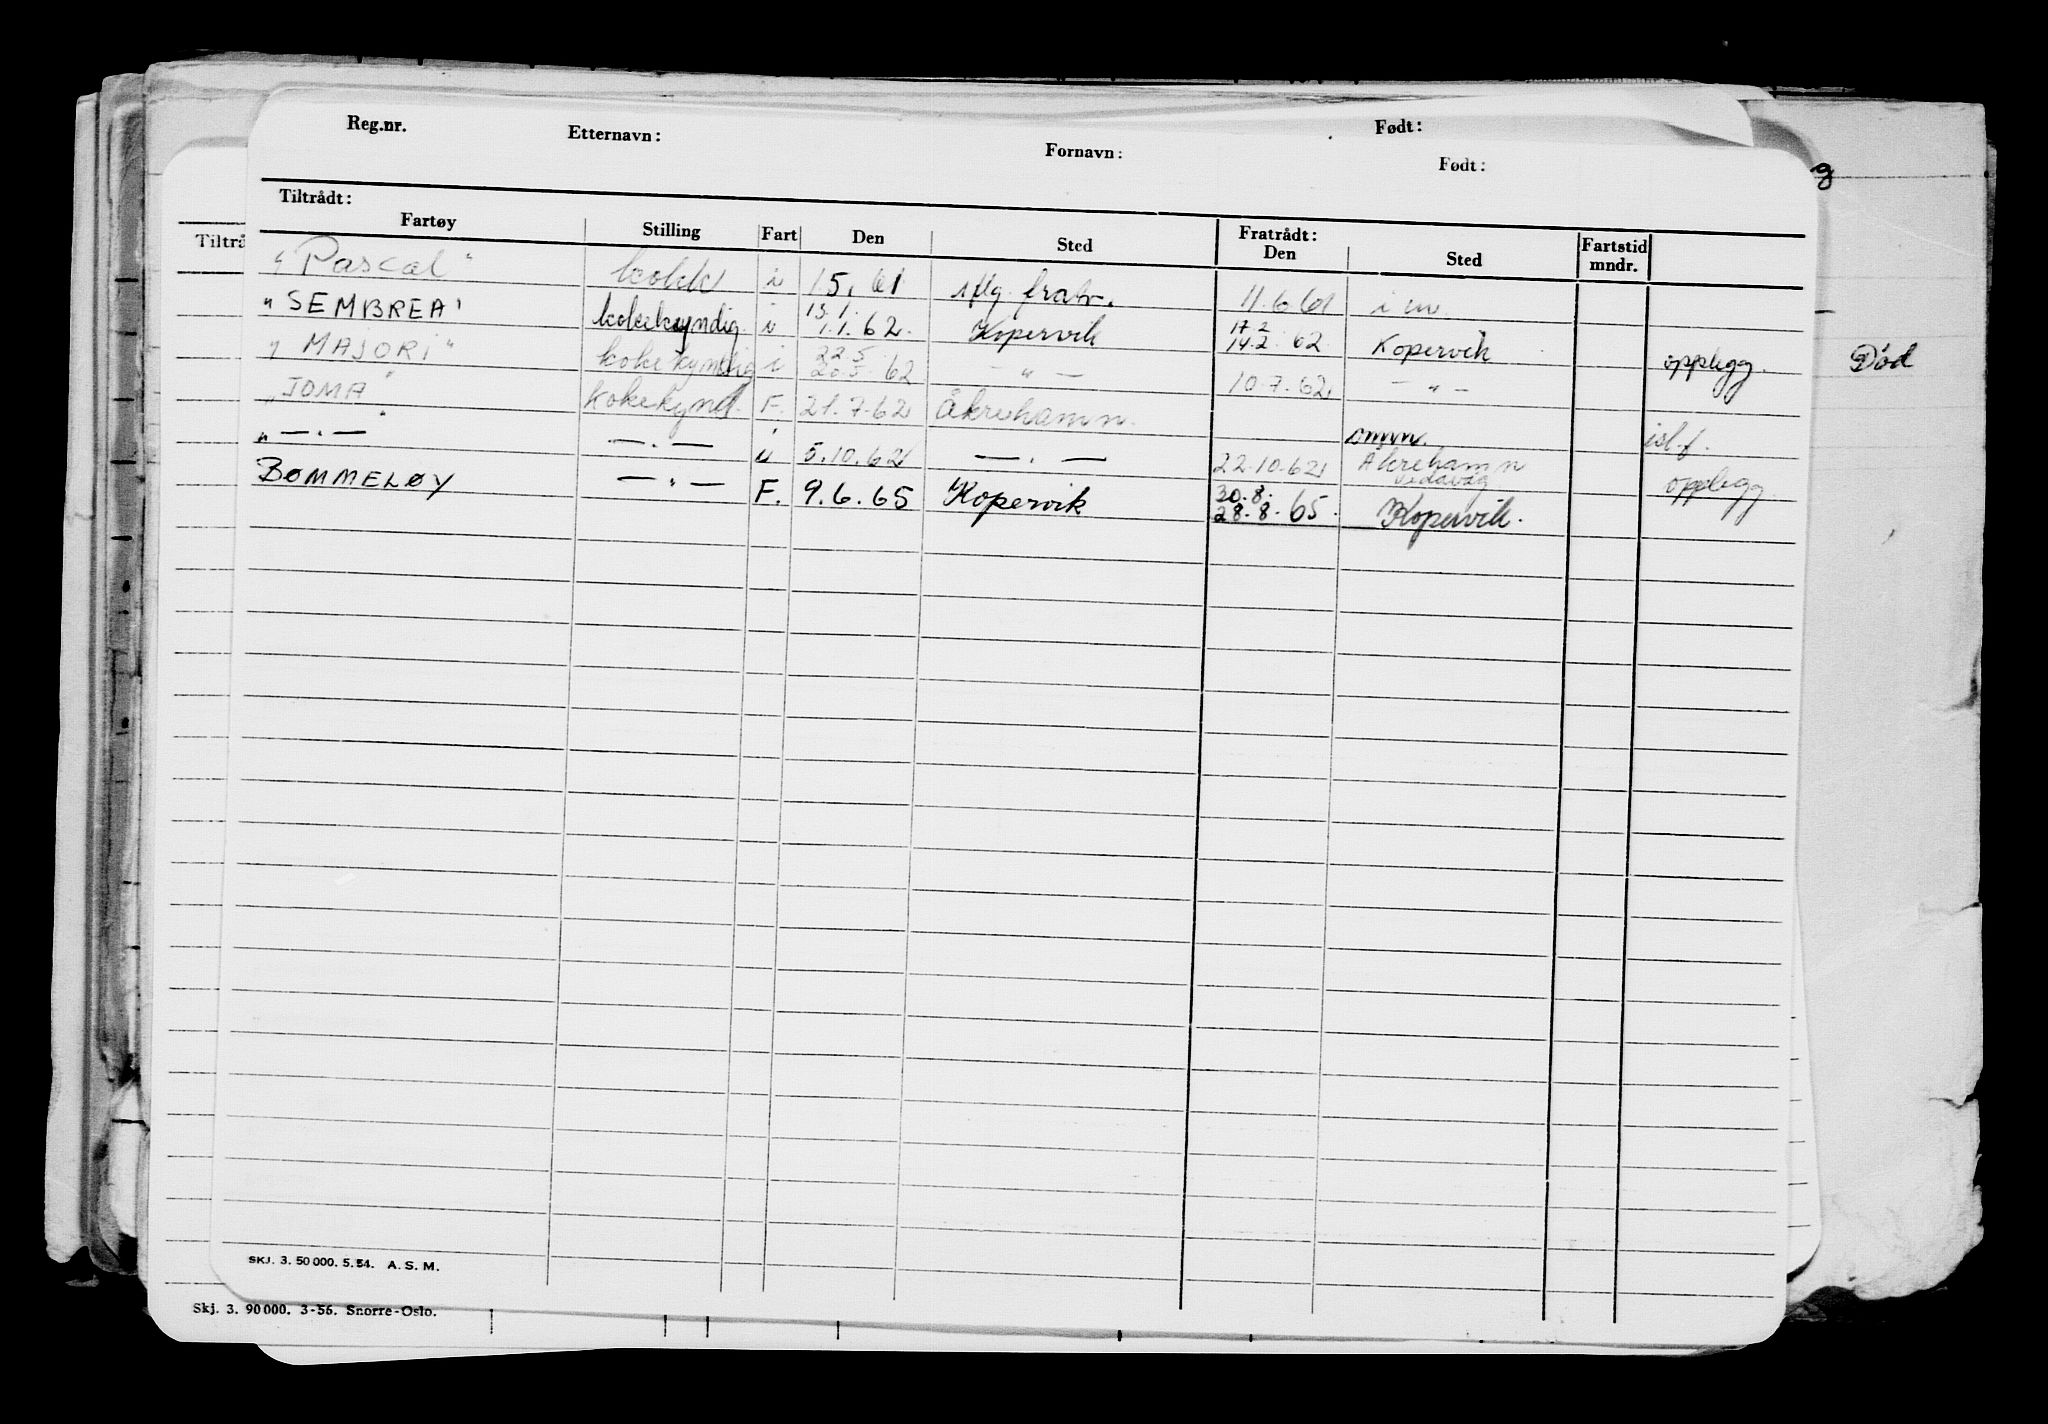 Reg.nr. Etternavn: Fornavn: Født:
Født:
Tiltrådt: Fratrådt:
Fartøy Stilling Fart Den Sted Den Sted Fartstid mndr.
"Pascal" kokk i 15. 61 iflg. fratr. 11.6.61 i
13.1. 17 2
"SEMBREA" kokekyndig i 1.1.62. Kopervik 14.2.62 Kopervik opplegg.
22.5
"MAJORI" kokekyndig i 20.5.62 — " — 10.7.62 — " —
"JOMA" kokekynd. F. 21.7.62 Åkrehamn omm. isl.f.
" — . — — . — i 5.10.62 — . — 22.10.62 Åkrehamn opplegg
Vedavåg
30.8.
BØMMELØY — " — F. 9.6.65 Kopervik 28.8.65. Kopervik.
Død
g
Tiltrå
SKJ. 3. 50 000. 5.54. A. S. M.
Skj. 3. 90 000. 3-56. Snorre-Oslo.